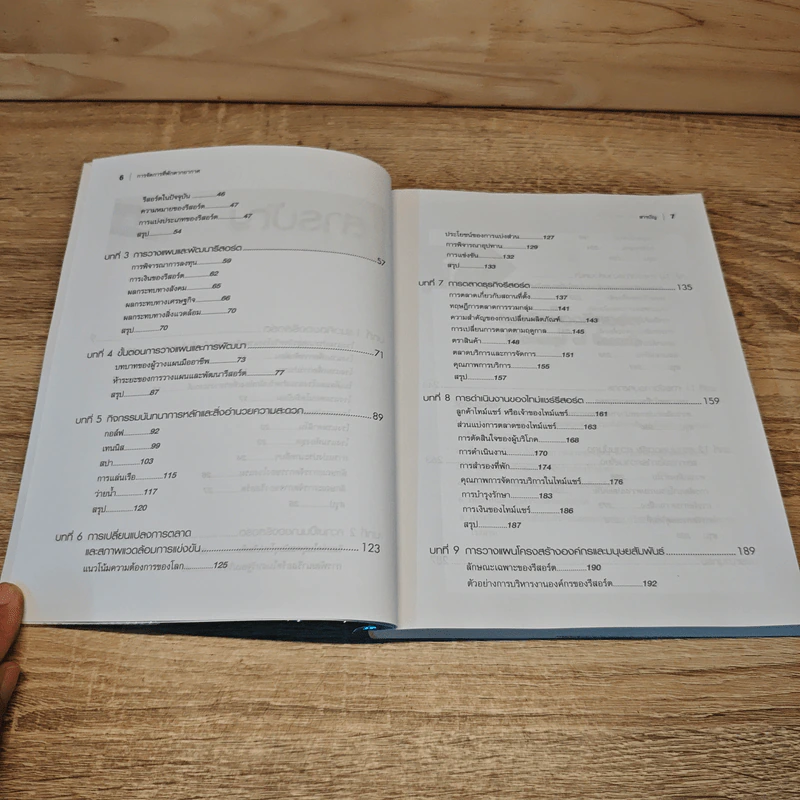 6 | การจัดการที่พักตากอากาศ
รีสอร์ตในปัจจุบัน ............46
ความหมายของรีสอร์ต............47
การแบ่งประเภทของรีสอร์ต............47
สรุป............54
บทที่ 3 การวางแผนและพัฒนารีสอร์ต............57
การพิจารณาการลงทุน............59
การเงินของรีสอร์ต............62
ผลกระทบทางสังคม............65
ผลกระทบทางเศรษฐกิจ............66
ผลกระทบทางสิ่งแวดล้อม............70
สรุป............70
บทที่ 4 ขั้นตอนการวางแผนและการพัฒนา............71
บทบาทของผู้วางแผนมืออาชีพ............73
ห้าระยะของการวางแผนและพัฒนารีสอร์ต............77
สรุป............87
บทที่ 5 กิจกรรมนันทนาการหลักและสิ่งอำนวยความสะดวก............89
กอล์ฟ............92
เทนนิส............99
สปา............103
การเล่นเรือ............115
ว่ายน้ำ............117
สรุป............120
บทที่ 6 การเปลี่ยนแปลงการตลาด
และสภาพแวดล้อมการแข่งขัน............123
แนวโน้มความต้องการของโลก............125
สารบัญ | 7
ประโยชน์ของการแบ่งส่วน............127
การพิจารณาอุปทาน............129
การแข่งขัน............132
สรุป............133
บทที่ 7 การตลาดธุรกิจรีสอร์ต............135
การตลาดเกี่ยวกับสถานที่ตั้ง............137
ทฤษฎีการตลาดการรวมกลุ่ม............141
ความสำคัญของการเปลี่ยนผลิตภัณฑ์............143
การเปลี่ยนการตลาดตามฤดูกาล............145
ตราสินค้า............146
ตลาดบริการและการจัดการ............151
คุณภาพการบริการ............155
สรุป............157
บทที่ 8 การดำเนินงานของไทม์แชร์รีสอร์ต............159
ลูกค้าไทม์แชร์ หรือเจ้าของไทม์แชร์............161
ส่วนแบ่งการตลาดของไทม์แชร์............163
การตัดสินใจของผู้บริโภค............168
การดำเนินงาน............170
การสำรองที่พัก............174
คุณภาพการจัดการบริการในไทม์แชร์............176
การบำรุงรักษา............183
การเงินของไทม์แชร์............186
สรุป............187
บทที่ 9 การวางแผนโครงสร้างองค์กรและมนุษยสัมพันธ์............189
ลักษณะเฉพาะของรีสอร์ต............190
ตัวอย่างการบริหารงานองค์กรของรีสอร์ต............192